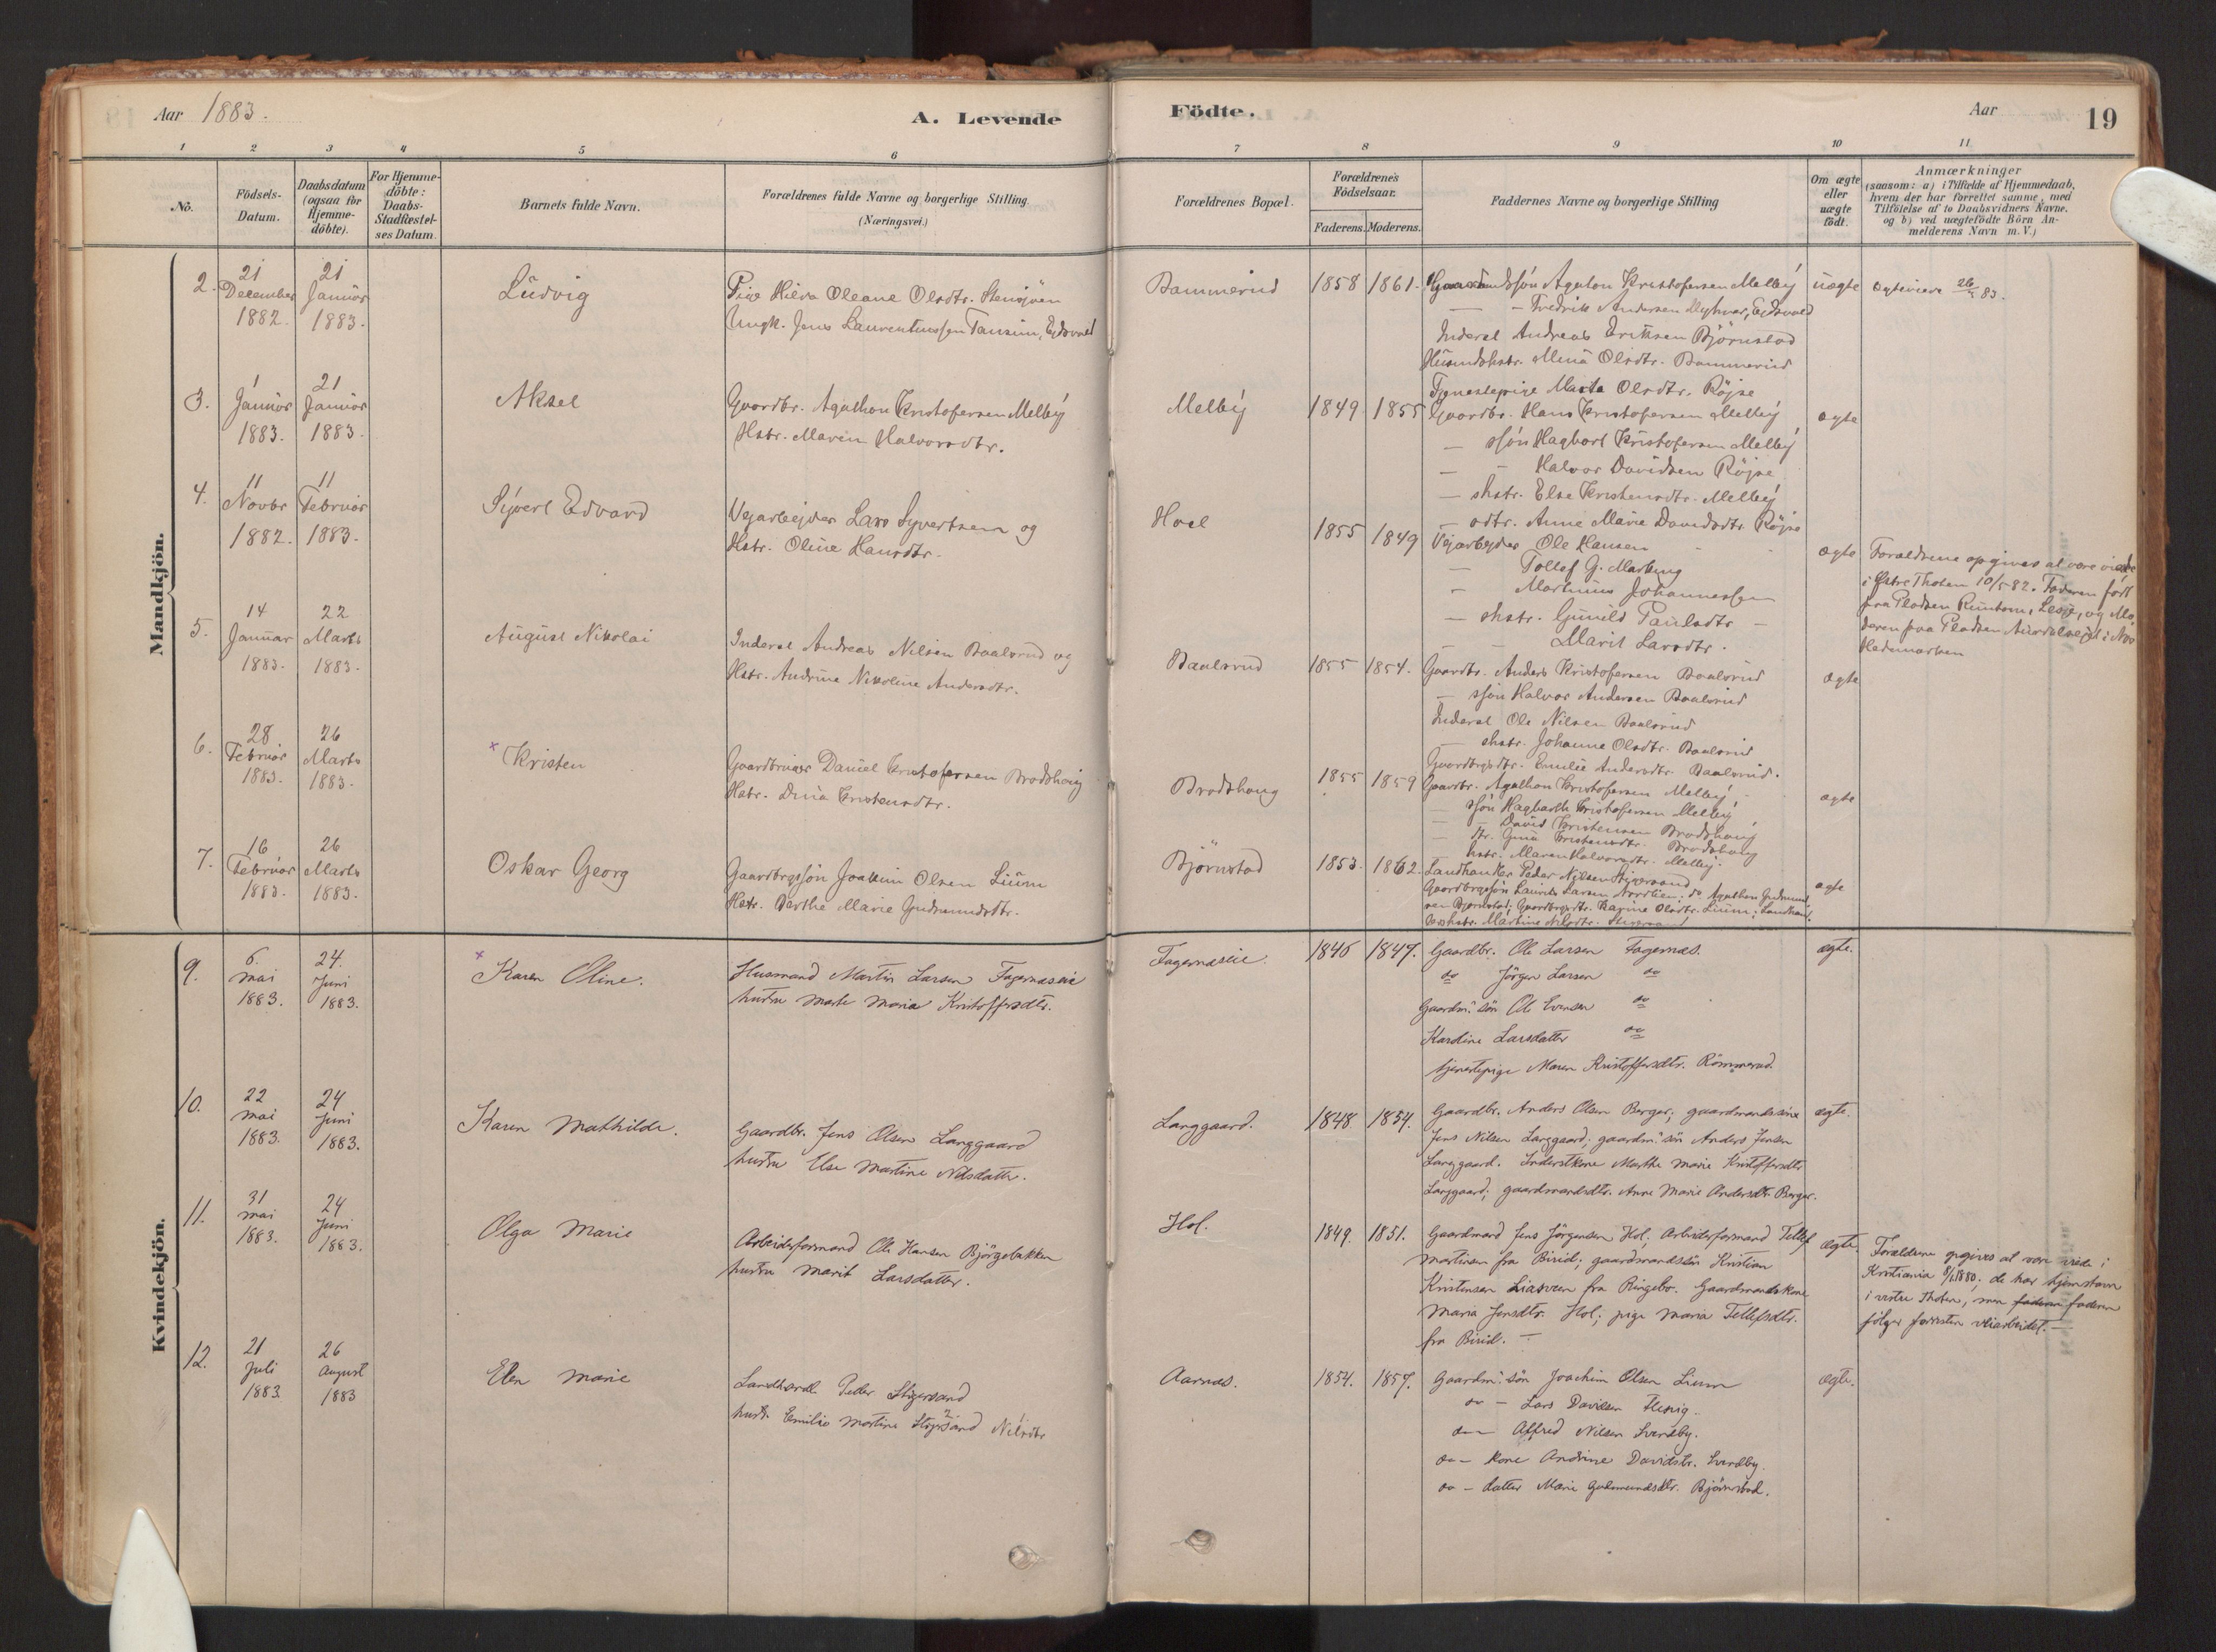 Aar 1883.
A. Levende
Födte.
Aar
19
1 2 3 4 5 6 7 8 9 10 11
No.
Födsels-
Datum.
Daabsdatum
(ogsaa for
Hjemme-
döbte).
For Hjemme-
döbte:
Daabs-
Stadfæstel-
ses Datum.
Barnets fulde Navn.
Forældrenes fulde Navne og borgerlige Stilling
(Næringsvei.)
Forældrenes Bopæl.
Forældrenes
Födselsaar.
Faderens. Moderens.
Faddernes Navne og borgerlige Stilling
Om ægte
eller
uægte
födt.
Anmærkninger
(saasom: a) i Tilfælde af Hjemmedaab,
hvem der har forrettet samme, med
Tilföielse af to Daabsvidners Navne.
og b) ved uægtefödte Börn An-
melderens Navn m.V.)
Mandkjön.
2.
21
December
1882.
21
Januar
1883.
Ludvig
Pige Oleane Olsdtr. Stensjöen
Ungk. Jens Laurentiussen
Bammerud
1858 1861.
Agaton Kristofersen Melby
Fredrik Andersen
Inderst Andreas Eriksen Björnstad
Olsdtr. Bammerud
Tjenestepige Marta Olsdtr. Röjse
uægte
26/5 83.
3.
1
Januar
1883.
21
Januar
1883.
Aksel
Gaardbr. Agathon Kristofersen Melby
Hstr. Maren Halvorsdtr.
Melby
1849 1855
Gaardbr. Hans Kristofersen Melby
— sön Hagbart Kristofersen Melby
— - Halvor Davidsen Röjse
— shstr. Else Kristensdtr. Melby
— sdtr. Anne Marie Davidsdtr. Röjse
ægte
4.
11
Novbr
1882.
11
Februar
1883.
Syvert Edvard
Vejarbejder Lars Syvertsen og
Hstr. Oline Hansdtr.
Hoel
1855 1849
Vejarbejder Ole Hansen
— Tollef G.
— Martinus Johannessen
— shstr. Gunild Paulsdtr —
— Marit Larsdtr.
ægte
Forældrene opgives at være viede
i Östre Thoten 10/5 82. Faderen född
fra Pladsen Lesje, og Mo-
deren fra Pladsen i Nes
Hedemarken
5.
14
Januar
1883.
22
Marts
1883.
August Nikolai
Inderst Andreas Nilsen Baalsrud og
Hstr. Andrine Nikoline Andersdtr.
Baalsrud
1855 1854.
Gaardbr. Anders Kristofersen Baalsrud
— sjön Halvor Andersen Baalsrud
Inderst Ole Nilsen Baalsrud
— shstr. Johanne Olsdtr. Baalsrud
Gaardbrgsdtr. Emilie Andersdtr. Baalsrud.
ægte
6.
28
Februar
1883.
26
Marts
1883.
× Kristen
Gaardbruger Daniel Kristofersen Brodshoug
Hstr. Dina Kristensdtr.
Brodshoug
1855 1859
Gaardbr. Agathon Kristofersen Melby
— sjön Hagbarth Kristofersen Melby
— - David Kristensen Brodshoug
— dtr. Gina Kristensdtr. Brodshoug
hstr. Maren Halvorsdtr. Melby.
ægte
7.
16
Februar
1883.
26
Marts
1883.
Oskar Georg
Gaardbrgsjön Joakim Olsen Lium
Hstr. Berthe Marie Gudmundsdtr.
Björnstad
1853. 1862.
Landhandler Peder Nilsen Stigersand
Gaardbrgsjön Laurits Larsen Nordlien; do Agathon Gudmund-
sen Björnstad; Gaardbrgsdtr. Karine Olsdtr. Lium; Landhand-
lershstr. Martine Nilsdtr.
ægte
Kvindekjön.
9.
6.
mai
1883.
24.
Juni
1883.
× Karen Oline.
Husmand Martin Larsen Fagernæseie
hustru Marte Maria Kristoffersdtr.
Fagernæseie.
1846 1847.
Gaardbr. Ole Larsen Fagernæs.
do Jörgen Larsen do
Gaardm. sön Ole Evensen do
Karoline Larsdatter do
tjenestepige Maren Kristoffersdtr. Römmerud.
ægte.
10.
22
mai
1883.
24
Juni
1883.
Karen Mathilde.
Gaardbr. Jens Olsen Langgaard
hustru Else Martine Nilsdatter.
Langgaard.
1848 1854.
Gaardbr. Anders Olsen Berger; gaardmandssön
Jens Nilsen Langgaard; gaardm. sön Anders Jensen
Langgaard. Inderstkone Marthe Marie Kristoffersdtr.
Langgaard; gaardmandsdtr. Anne Marie Andersdtr. Berger.
ægte.
11.
31
mai
1883.
24
Juni
1883.
Olga Marie
Arbeidsformand Ole Hansen Björgebakken
hustru Marit Larsdatter.
Hol.
1849. 1851.
Gaardmand Jens Jörgensen Hol; Arbeidsformand Tellef
Martinsen fra Birid; gaardmandssön Kristian
Kristensen fra Ringebo. Gaardmandskone
Maria Jensdtr. Hol; pige Maria Tellefsdtr.
fra Birid. —
ægte.
Forældrene opgives at være viede i
Kristiania 8/1 1880; de har hjemstavn
i vestre Thoten, men faderen faderen
fölger veiarbeidet. —
12.
21
Juli
1883.
26
August
1883
Elen Marie
Landhandl. Peder Stigersand
hustr. Emilie Martine Stigersand Nilsdtr
Aarnæs.
1854. 1857.
Gaardm. sön Joachim Olsen Lium
do — Lars Davidsen
do — Alfred Nilsen Sværdby.
do — kone Andrine Davidsdtr. Sværdby.
do — datter Marie Gudmundsdtr. Björnstad.
ægte.